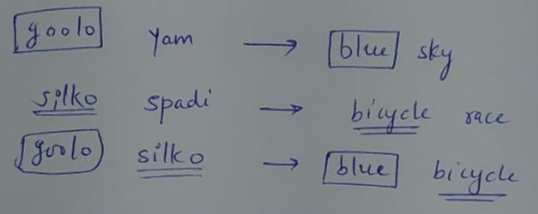 goolo yam → blue sky
silko spadi → bicycle race
goolo silko → blue bicycle